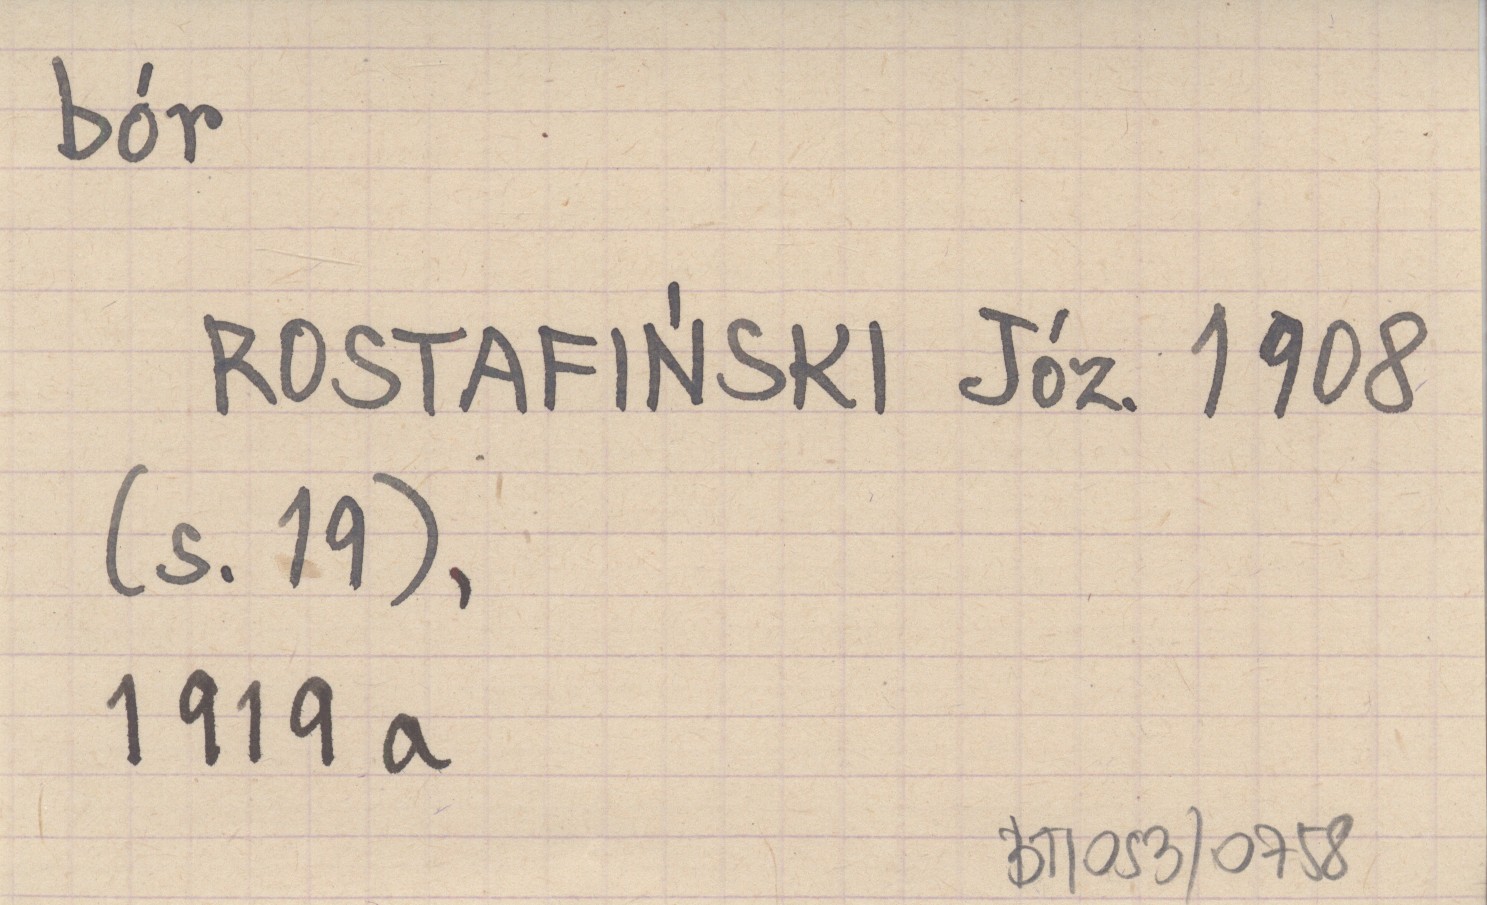 bór
ROSTAFIŃSKI Józ. 1908
(s. 19),
1919 a
BT/053/0758